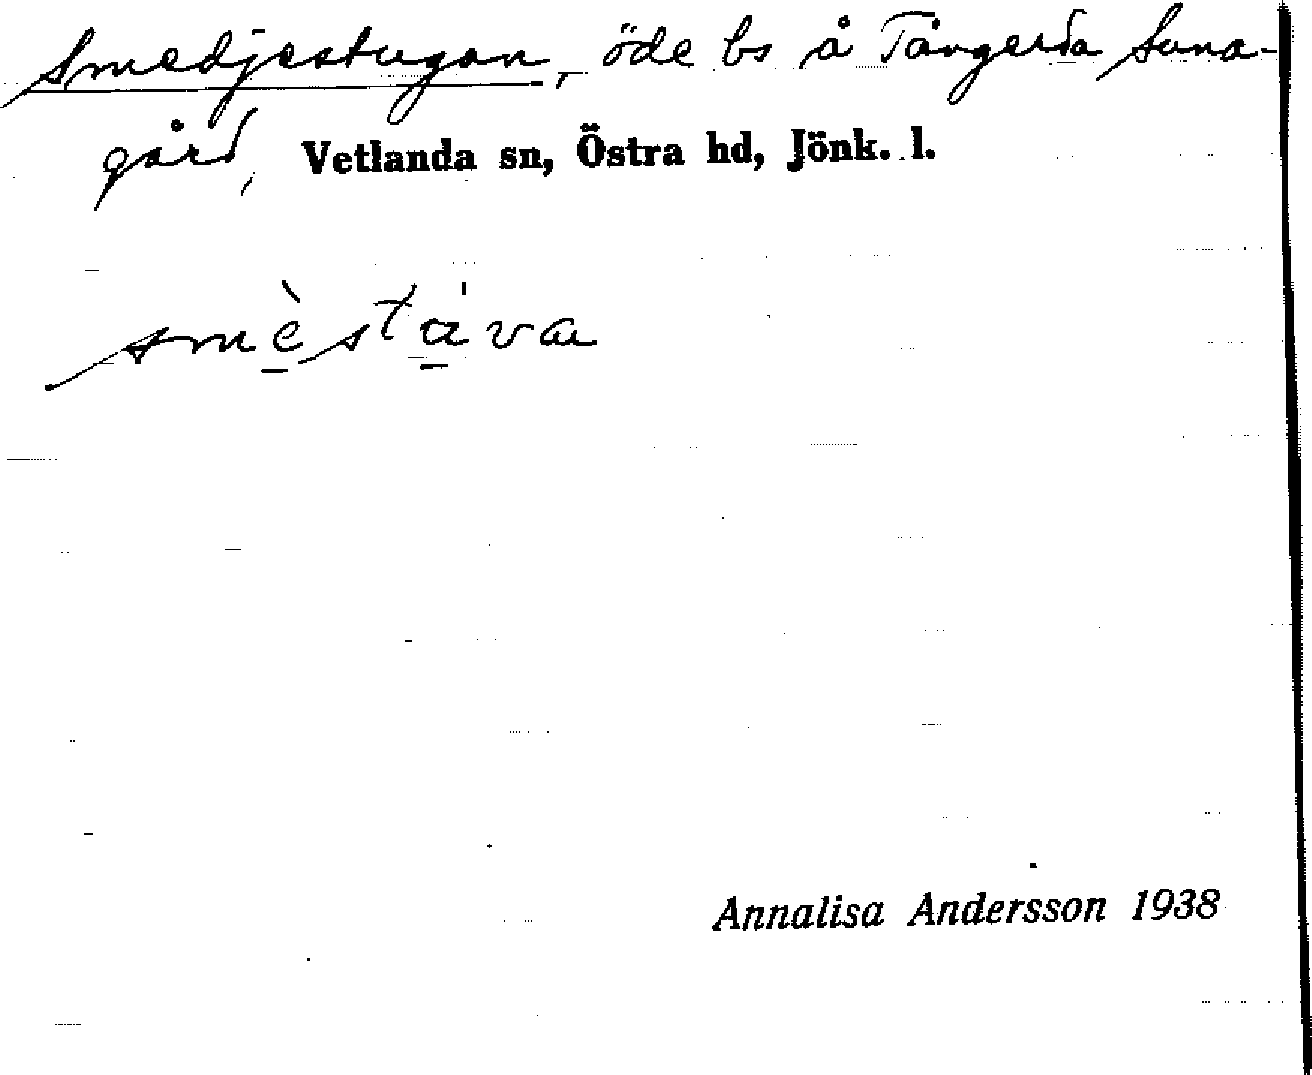 Smedjestugan, öde bs å Tångerda Suna-
gård, Vetlanda sn, Östra hd, Jönk. l.
smè̱sta̱̍va
Annalisa Andersson 1938